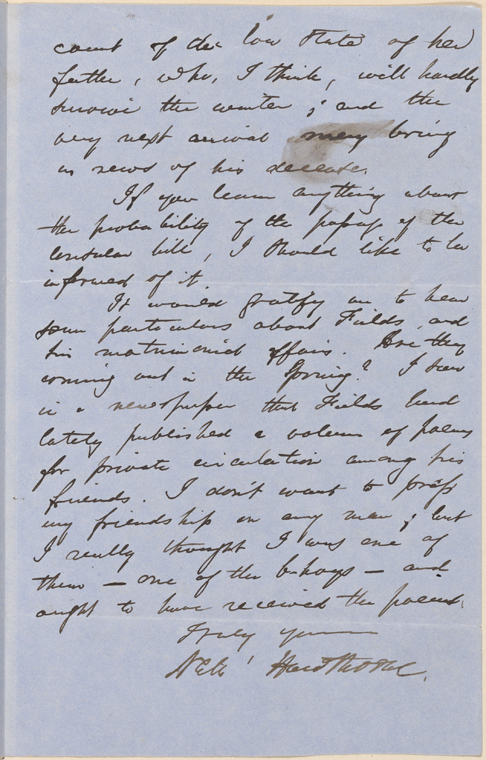 count of the low state of her
father, who, I think, will hardly
survive the winter; and the
very next arrival may bring
us news of his decease.
If you learn anything about
the probability of the passage of the
Consular bill, I should like to be
informed of it.
It would gratify me to hear
some particulars about Fields, and
his matrimonial affairs. Are they
coming out in the Spring? I saw
in a newspaper that Fields had
lately published a volume of poems
for private circulation among his
friends. I don't want to press
my friendship on any man; but
I really thought I was one of
them — one of the b'hoys — and
ought to have received the poems.
Truly yours
Nath' Hawthorne.